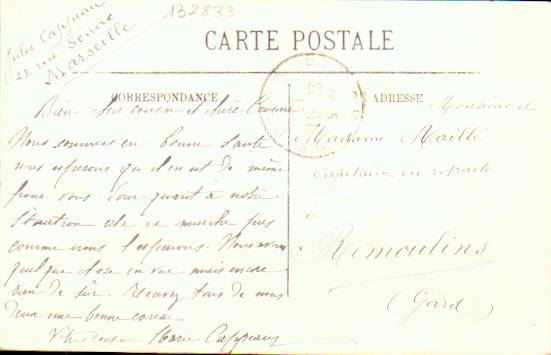 132833
Jules Cappeau
23 rue Sénac
Marseille
CARTE POSTALE
CORRESPONDANCE
ADRESSE
Bien cher cousin et chère Cousine
Nous sommes en bonne santé
nous espérons qu'il en est de même
pour vous. Pour quant à notre
situation elle ne marche pas
comme nous l'espérions. Nous avons
quelque chose en vue mais encore
rien de sûr. Recevez tous de nous
deux une bonne caresse.
Votre cousine Marie Cappeau
Monsieur et
Madame Maillé
Capitaine en retraite
à
Remoulins
(Gard)